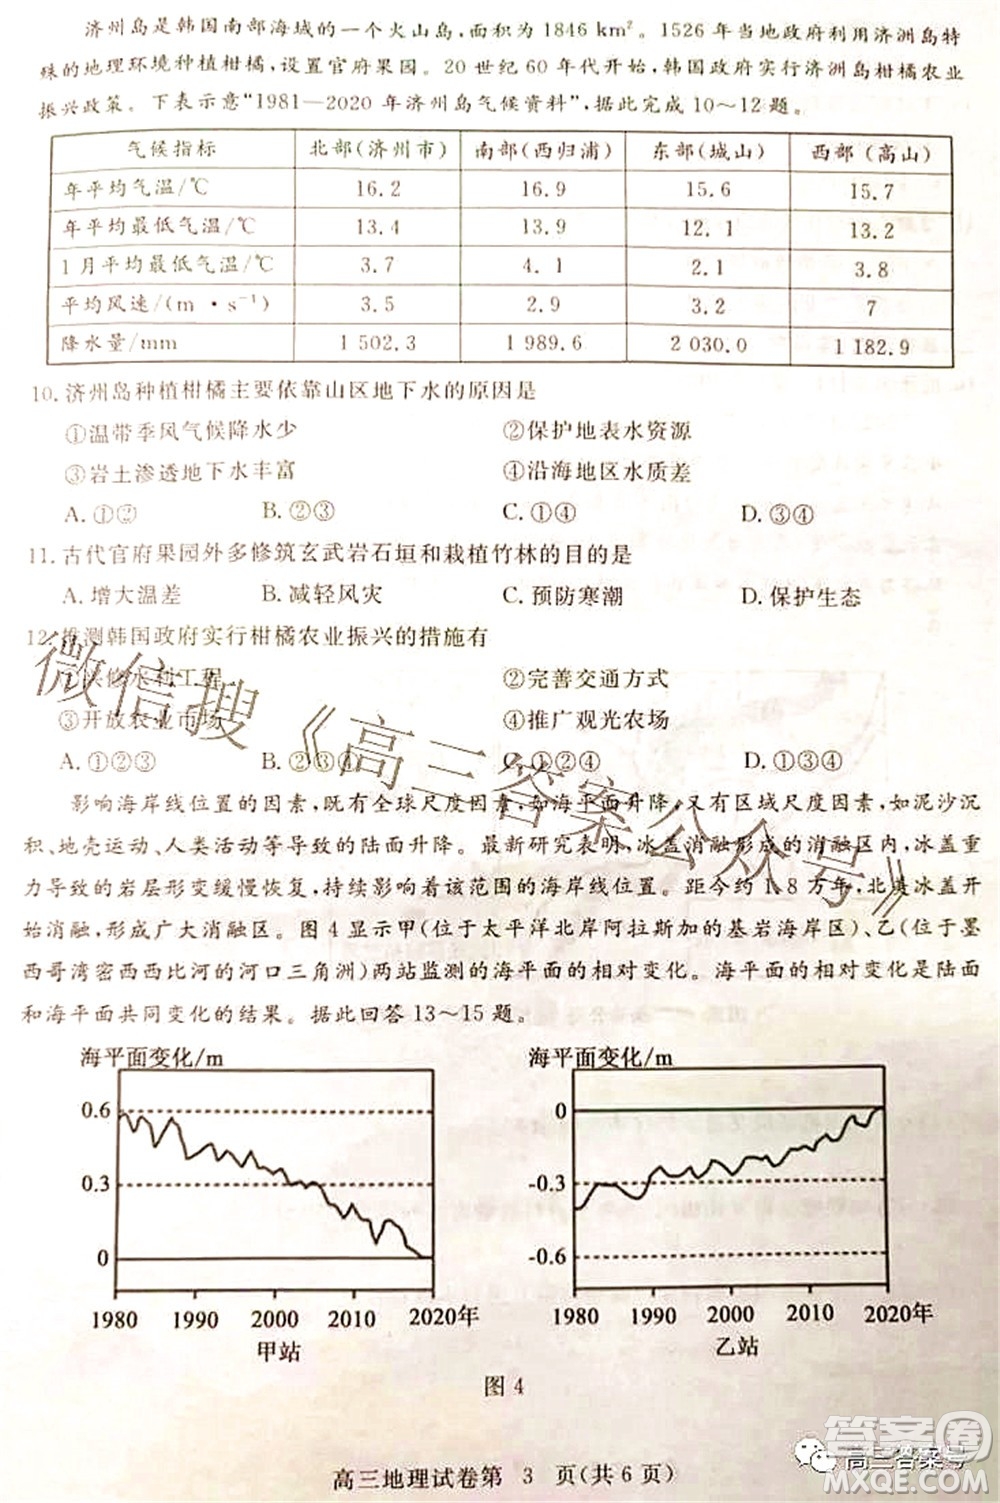 济州岛是韩国南部海域的一个火山岛，面积为 1846 km²。1526 年当地政府利用济洲岛特
殊的地理环境种植柑橘，设置官府果园。20 世纪 60 年代开始，韩国政府实行济洲岛柑橘农业
振兴政策。下表示意“1981—2020 年济州岛气候资料”，据此完成 10～12 题。
气候指标 北部(济州市) 南部(西归浦) 东部(城山) 西部(高山)
年平均气温/℃ 16.2 16.9 15.6 15.7
年平均最低气温/℃ 13.4 13.9 12.1 13.2
1月平均最低气温/℃ 3.7 4.1 2.1 3.8
平均风速/(m·s⁻¹) 3.5 2.9 3.2 7
降水量/mm 1 502.3 1 989.6 2 030.0 1 182.9
10. 济州岛种植柑橘主要依靠山区地下水的原因是
①温带季风气候降水少 ②保护地表水资源
③岩土渗透地下水丰富 ④沿海地区水质差
A. ①② B. ②③ C. ①④ D. ③④
11. 古代官府果园外多修筑玄武岩石垣和栽植竹林的目的是
A. 增大温差 B. 减轻风灾 C. 预防寒潮 D. 保护生态
12. 推测韩国政府实行柑橘农业振兴的措施有
水利工程 ②完善交通方式
③开放农业市场 ④推广观光农场
A. ①②③ B. ②③④ C. ①②④ D. ①③④
影响海岸线位置的因素，既有全球尺度因素，如海平面升降，又有区域尺度因素，如泥沙沉
积、地壳运动、人类活动等导致的陆面升降。最新研究表明，冰盖消融形成的消融区内，冰盖重
力导致的岩层形变缓慢恢复，持续影响着该范围的海岸线位置。距今约 1.8 万年，北美冰盖开
始消融，形成广大消融区。图 4 显示甲(位于太平洋北岸阿拉斯加的基岩海岸区)、乙(位于墨
西哥湾密西西比河的河口三角洲)两站监测的海平面的相对变化。海平面的相对变化是陆面
和海平面共同变化的结果。据此回答 13～15 题。
海平面变化/m 海平面变化/m
0.6 0
0.3 -0.3
0 -0.6
1980 1990 2000 2010 2020年 1980 1990 2000 2010 2020年
甲站 乙站
图 4
高三地理试卷第 3 页(共 6 页)
微信搜《高三答案公众号》
高三答案号
答案圈
MXQE.COM